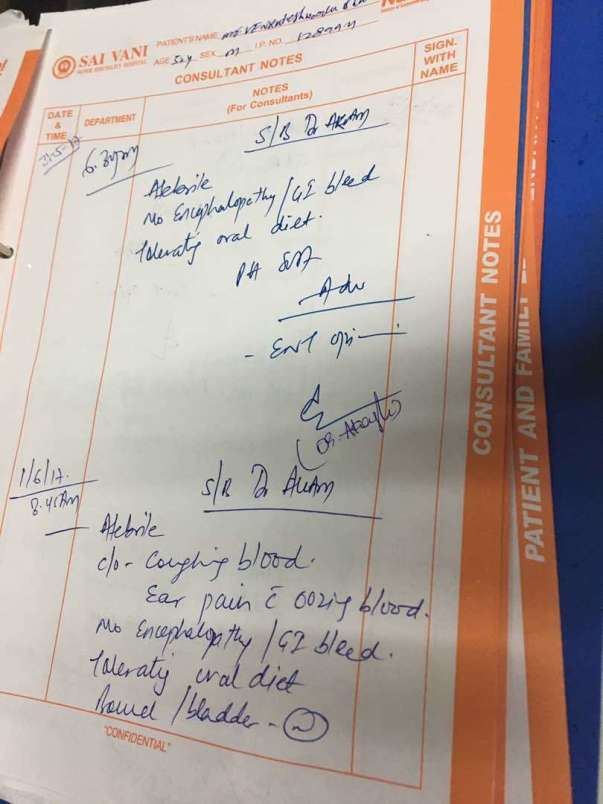 SAI VANI
SUPER SPECIALITY HOSPITAL
PATIENT'S NAME
AGE 52y SEX M I.P. NO.
CONSULTANT NOTES
DATE & TIME
DEPARTMENT
NOTES
(For Consultants)
SIGN. WITH NAME
S/B Dr
Afebrile
No Encephalopathy / GI bleed
Tolerating oral diet.
P/A soft
Adv
- ENT
1/6/17.
8.45AM
S/B Dr
Afebrile
c/o - Coughing blood.
Ear pain c̄ oozing blood.
No Encephalopathy / GI bleed.
Tolerating oral diet
Bowel / bladder - N
"CONFIDENTIAL"
CONSULTANT NOTES
PATIENT AND FAMILY